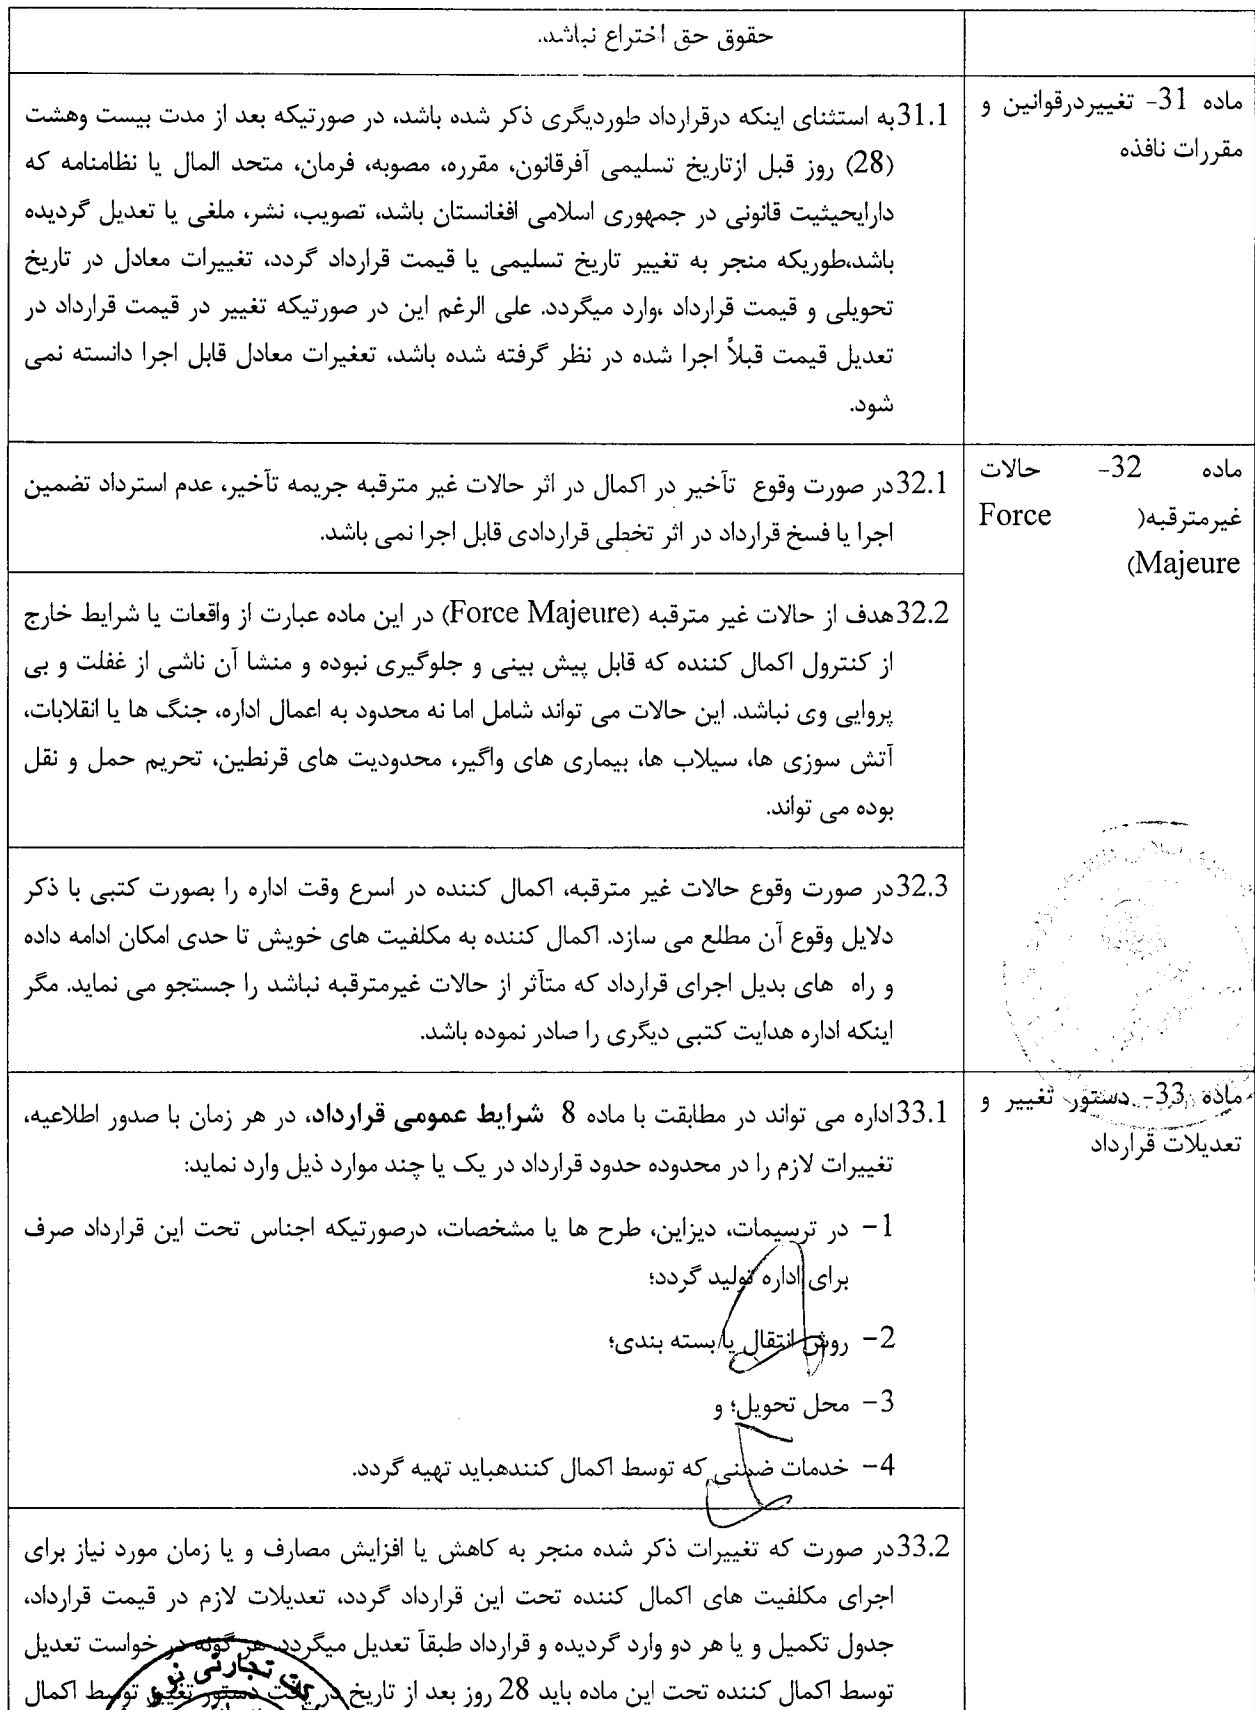 حقوق حق اختراع نباشد.
ماده 31- تغییردرقوانین و
مقررات نافذه
31.1به استثنای اینکه درقرارداد طوردیگری ذکر شده باشد، در صورتیکه بعد از مدت بیست وهشت
(28) روز قبل ازتاریخ تسلیمی آفرقانون، مقرره، مصوبه، فرمان، متحد المال یا نظامنامه که
دارایحیثیت قانونی در جمهوری اسلامی افغانستان باشد، تصویب، نشر، ملغی یا تعدیل گردیده
باشد،طوریکه منجر به تغییر تاریخ تسلیمی یا قیمت قرارداد گردد، تغییرات معادل در تاریخ
تحویلی و قیمت قرارداد ،وارد میگردد. علی الرغم این در صورتیکه تغییر در قیمت قرارداد در
تعدیل قیمت قبلاً اجرا شده در نظر گرفته شده باشد، تعغیرات معادل قابل اجرا دانسته نمی
شود.
ماده 32- حالات
غیرمترقبه( Force
Majeure)
32.1در صورت وقوع تأخیر در اکمال در اثر حالات غیر مترقبه جریمه تأخیر، عدم استرداد تضمین
اجرا یا فسخ قرارداد در اثر تخطی قراردادی قابل اجرا نمی باشد.
32.2هدف از حالات غیر مترقبه (Force Majeure) در این ماده عبارت از واقعات یا شرایط خارج
از کنترول اکمال کننده که قابل پیش بینی و جلوگیری نبوده و منشا آن ناشی از غفلت و بی
پروایی وی نباشد. این حالات می تواند شامل اما نه محدود به اعمال اداره، جنگ ها یا انقلابات،
آتش سوزی ها، سیلاب ها، بیماری های واگیر، محدودیت های قرنطین، تحریم حمل و نقل
بوده می تواند.
32.3در صورت وقوع حالات غیر مترقبه، اکمال کننده در اسرع وقت اداره را بصورت کتبی با ذکر
دلایل وقوع آن مطلع می سازد. اکمال کننده به مکلفیت های خویش تا حدی امکان ادامه داده
و راه های بدیل اجرای قرارداد که متآثر از حالات غیرمترقبه نباشد را جستجو می نماید. مگر
اینکه اداره هدایت کتبی دیگری را صادر نموده باشد.
ماده 33- دستور تغییر و
تعدیلات قرارداد
33.1اداره می تواند در مطابقت با ماده 8 شرایط عمومی قرارداد، در هر زمان با صدور اطلاعیه،
تغییرات لازم را در محدوده حدود قرارداد در یک یا چند موارد ذیل وارد نماید:
1- در ترسیمات، دیزاین، طرح ها یا مشخصات، درصورتیکه اجناس تحت این قرارداد صرف
برای اداره تولید گردد؛
2- روش انتقال یا بسته بندی؛
3- محل تحویل؛ و
4- خدمات ضمنی که توسط اکمال کنندهباید تهیه گردد.
33.2در صورت که تغییرات ذکر شده منجر به کاهش یا افزایش مصارف و یا زمان مورد نیاز برای
اجرای مکلفیت های اکمال کننده تحت این قرارداد گردد، تعدیلات لازم در قیمت قرارداد،
جدول تکمیل و یا هر دو وارد گردیده و قرارداد طبقآ تعدیل میگردد. هر گونه در خواست تعدیل
توسط اکمال کننده تحت این ماده باید 28 روز بعد از تاریخ در یافت دستور تغییر توسط اکمال
تجارتی